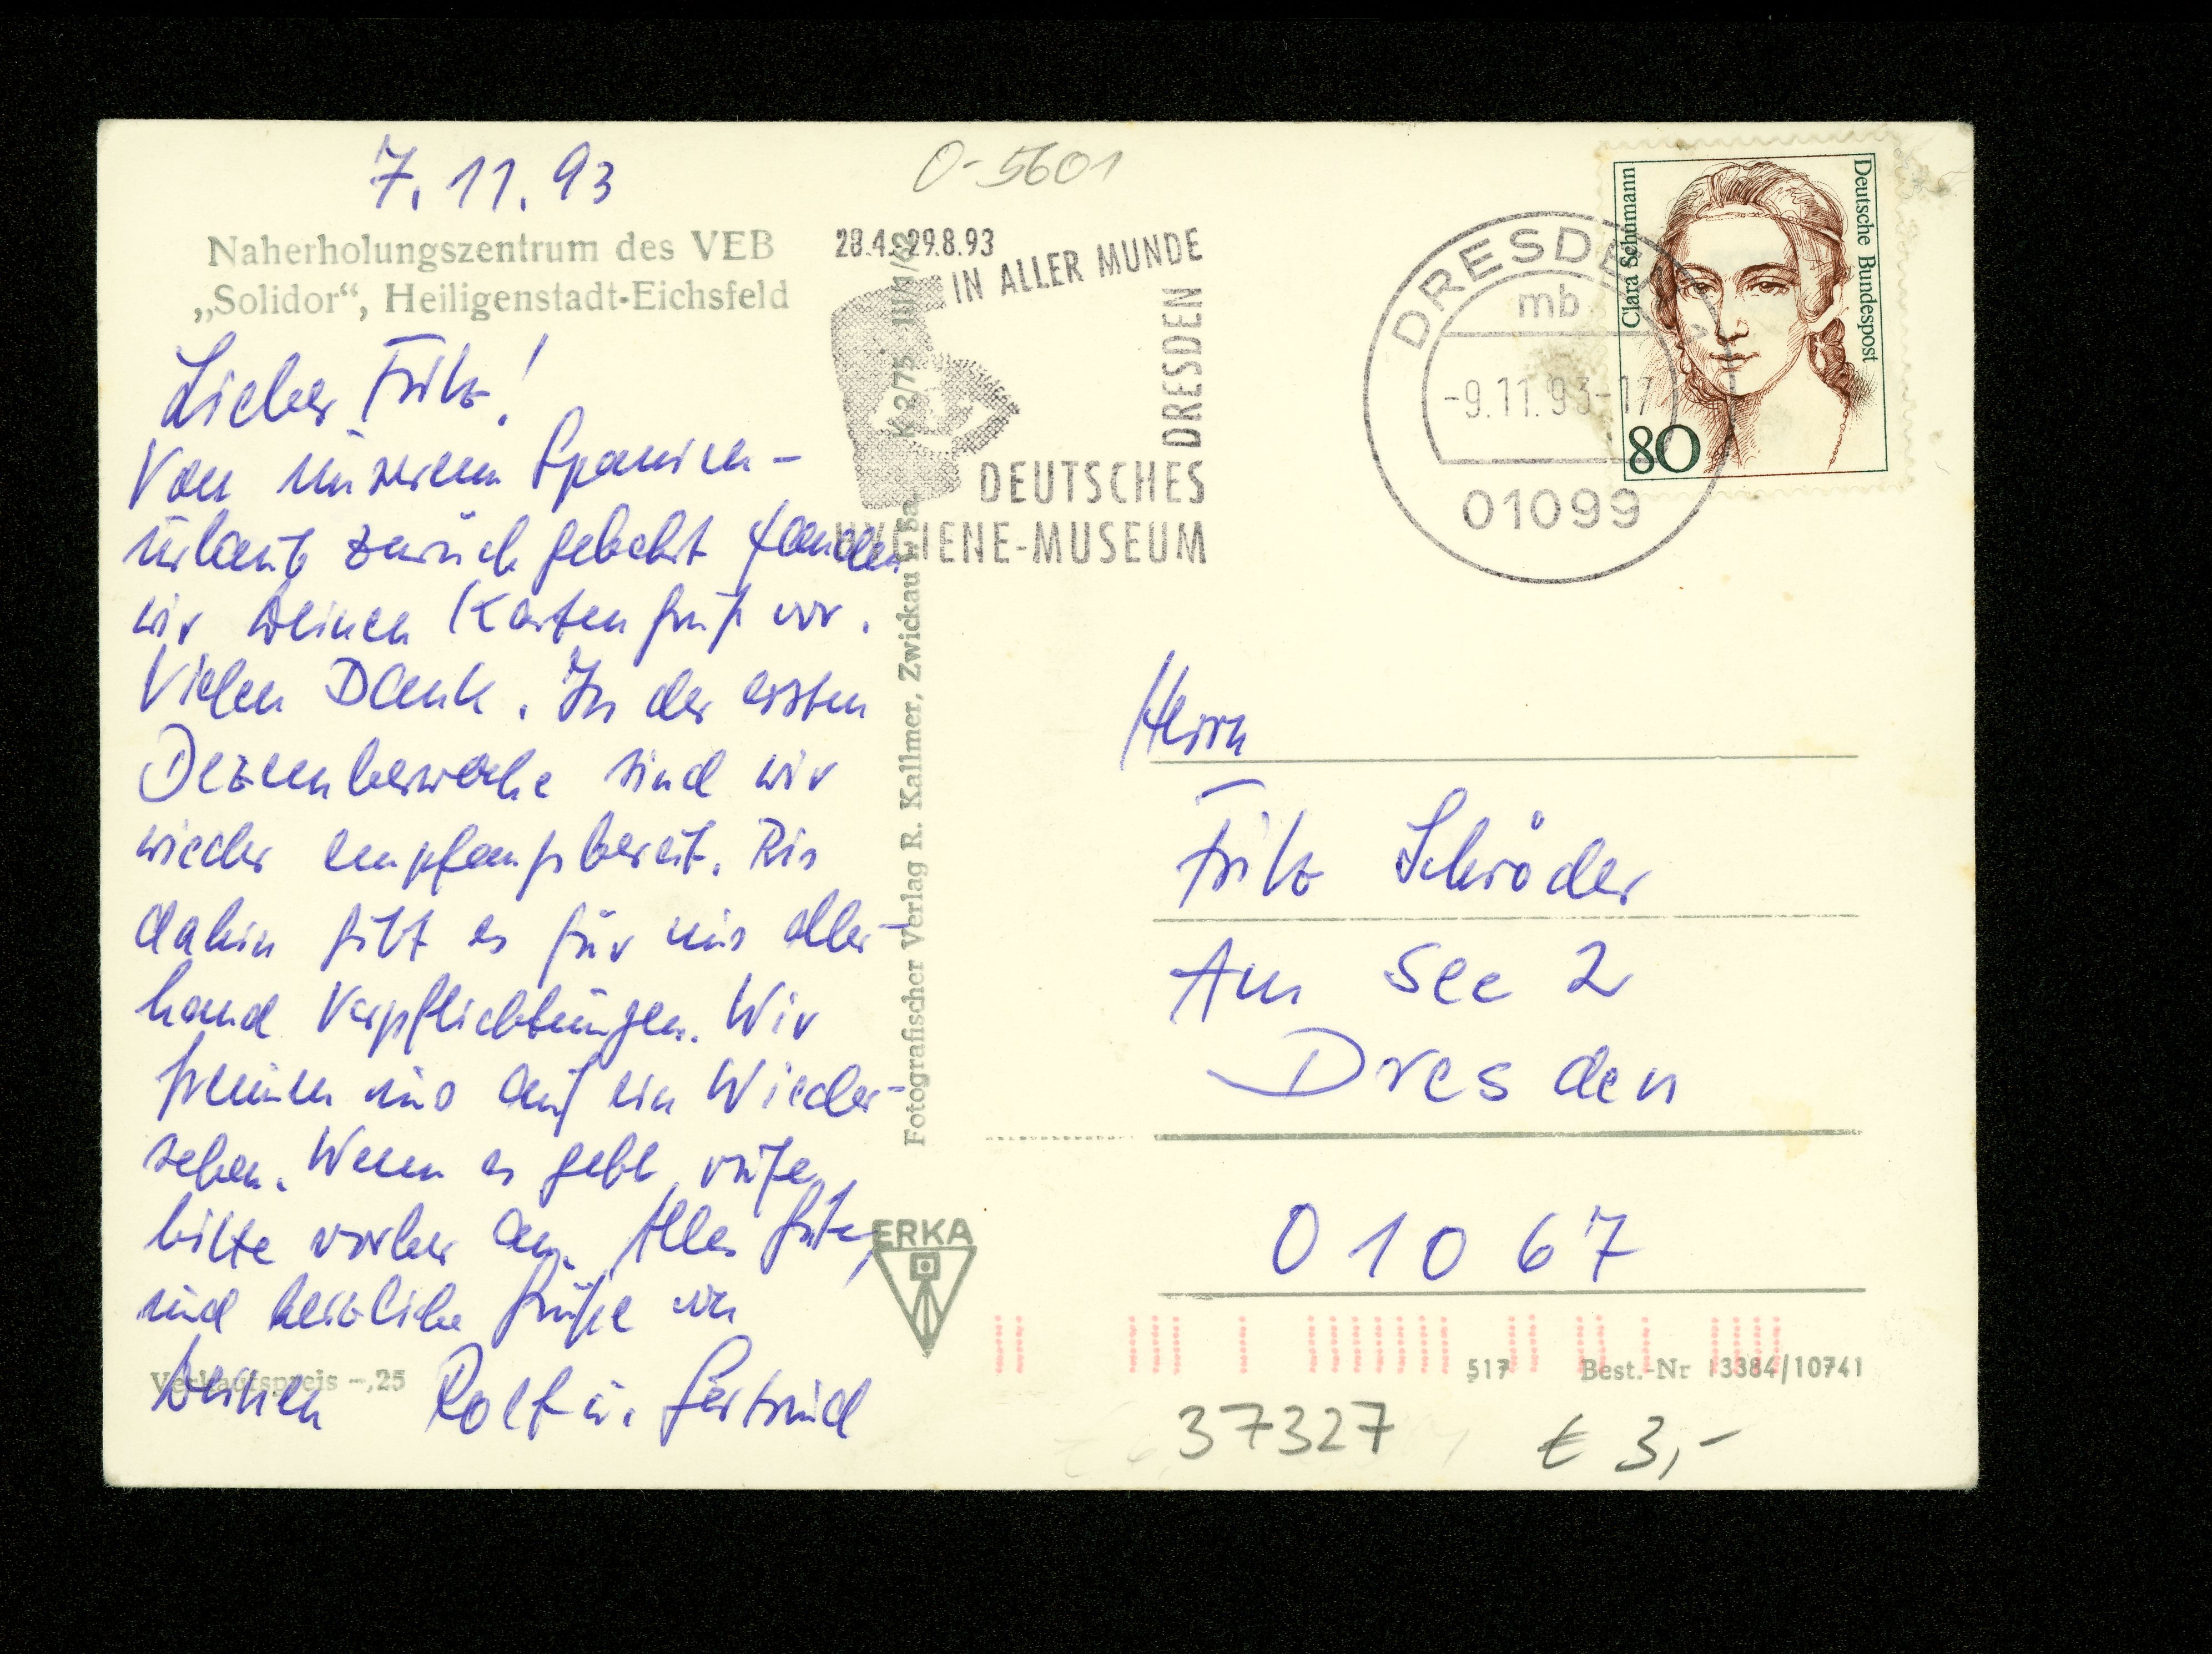 7.11.93
O-5601
Naherholungszentrum des VEB
„Solidor“, Heiligenstadt-Eichsfeld
Lieber Fritz!
Von unserem Spanien-
urlaub zurück gekehrt fanden
wir Deinen Kartengruß vor.
Vielen Dank. In der ersten
Dezemberwoche sind wir
wieder empfangsbereit. Bis
dahin gibt es für uns aller-
hand Verpflichtungen. Wir
freuen uns auf ein Wieder-
sehen. Wenn es geht, rufe
bitte vorher an. Alles Gute,
und herzliche Grüße von
Deinen Rolf u. Gertrud
Verkaufspreis -,25
Fotografischer Verlag R. Kallmer, Zwickau
ERKA
28.4.-29.8.93
IN ALLER MUNDE
DRESDEN
DEUTSCHES
HYGIENE-MUSEUM
DRESDEN
mb
-9.11.93-17
01099
Clara Schumann
Deutsche Bundespost
80
Herrn
Fritz Schröder
Am See 2
Dresden
01067
517 Best.-Nr 13384/10741
37327 € 3,-